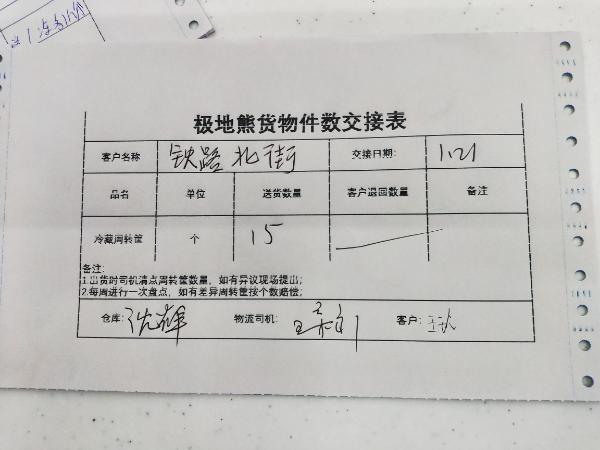 极地熊货物件数交接表
客户名称 铁路北街 交接日期: 1.21
品名 单位 送货数量 客户退回数量 备注
冷藏周转筐 个 15
备注:
1.出货时司机清点周转筐数量，如有异议现场提出;
2.每周进行一次盘点，如有差异周转筐按个数赔偿;
仓库: 物流司机: 客户: